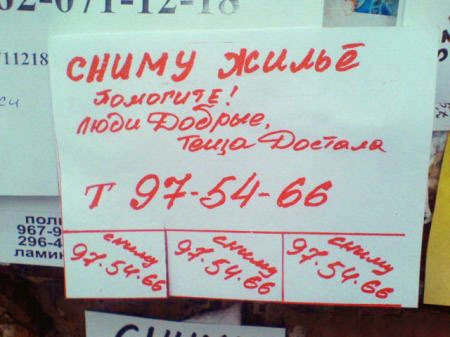 62-071-12-18
711218
СНИМУ ЖИЛЬЁ
ПОМОГИТЕ!
ЛЮДИ ДОБРЫЕ,
ТЕЩА ДОСТАЛА
Т 97-54-66
СНИМУ
97.54.66
СНИМУ
97.54.66
СНИМУ
97.54.66
967-9
296-4
ламин
СНИМУ